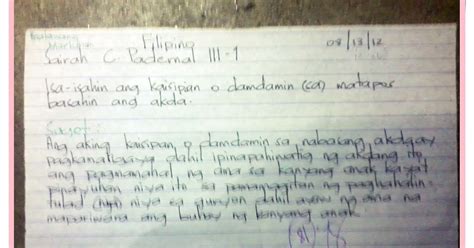 Filipino
08/13/12
Sairah C. Padernal III-1
Isa-isahin ang kaisipan o damdamin (sa) matapos
basahin ang akda.
Sagot:
Ang aking kaisipan o damdamin sa nabasang akda ay
dahil ipinapahiwatig ng akdang ito
ang pagmamahal ng ama sa kanyang anak kaya't
pinayuhan niya ito sa pamamagitan ng paghahalin-
tulad niya sa gunyun dahil ayaw ng ama na
mapariwara ang buhay ng kanyang anak.